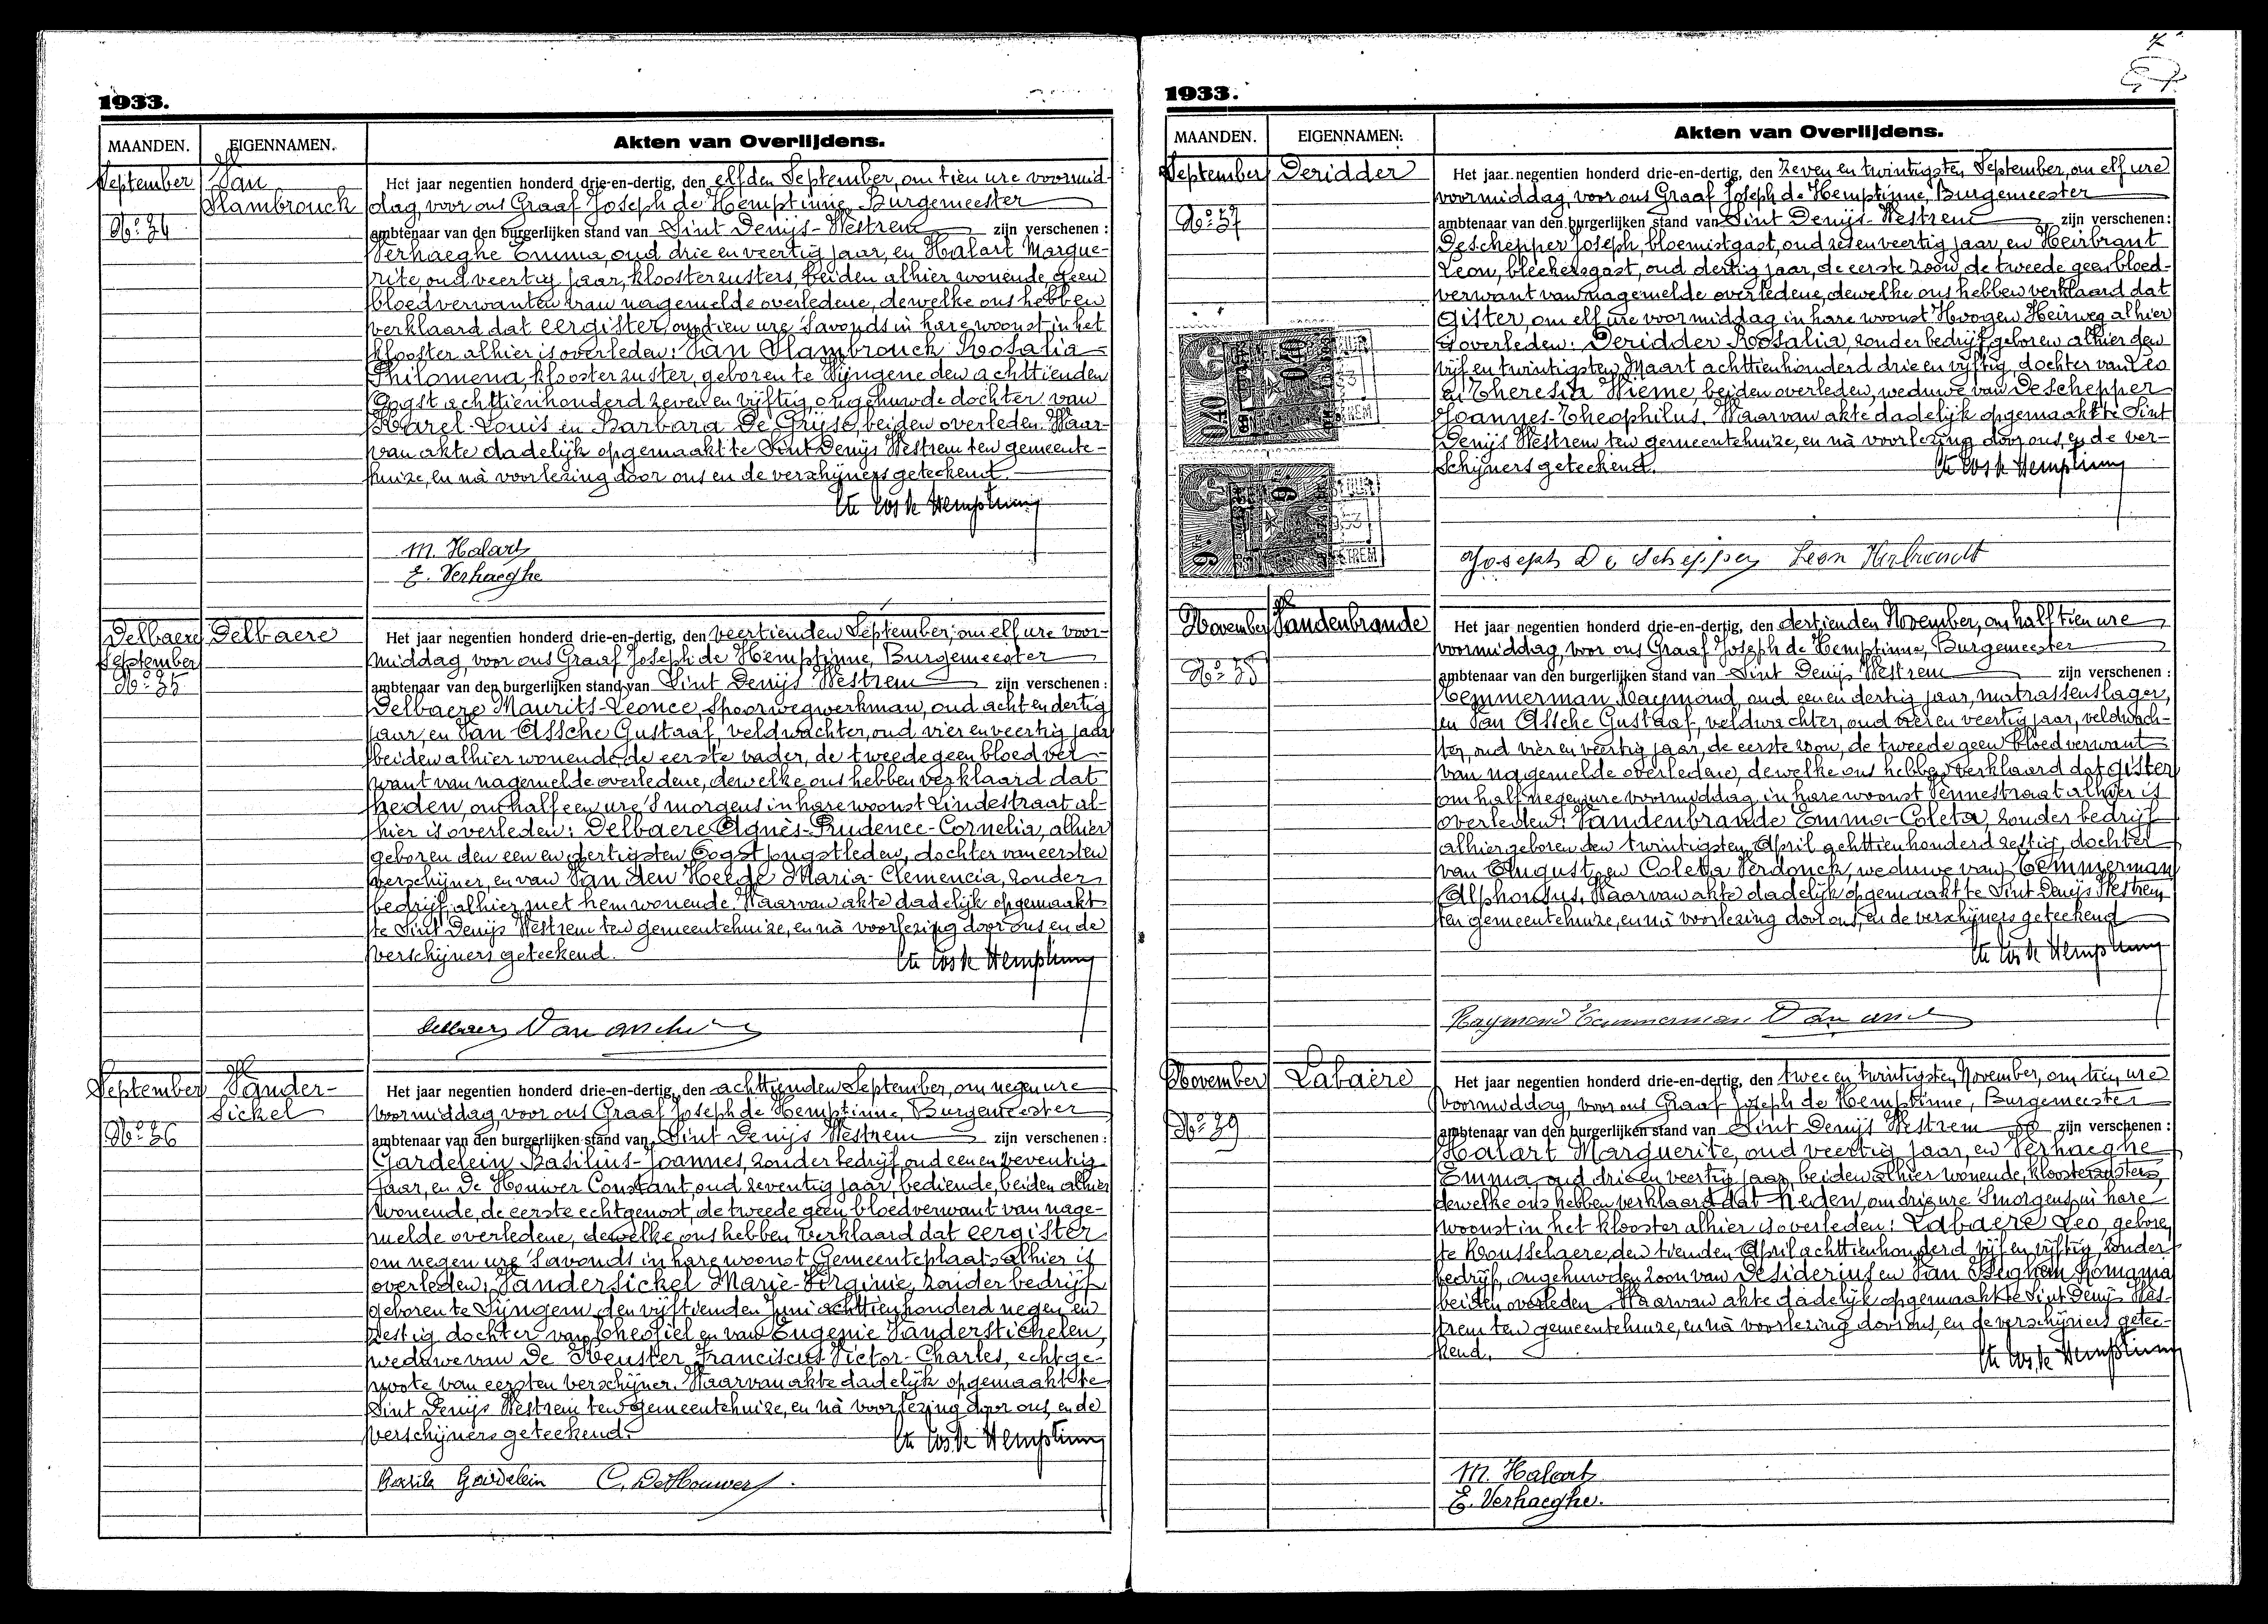 1933.
MAANDEN. EIGENNAMEN. Akten van Overlijdens.
September
No 34
Van
Slambrouck
Het jaar negentien honderd drie-en-dertig, den elfden September, om tien ure voormid-
dag, voor ons Graaf Joseph de Hemptinne, Burgemeester
ambtenaar van den burgerlijken stand van Sint Denijs-Westrem zijn verschenen:
Verhaeghe Emma, oud drie en veertig jaar, en Halart Margue-
rite, oud veertig jaar, kloosterzusters, beiden alhier wonende, geen
bloedverwanten van nagemelde overledene, dewelke ons hebben
verklaard dat eergister, om tien ure 's avonds in hare woonst in het
klooster alhier is overleden: Van Slambrouck Rosalia-
Philomena, kloosterzuster, geboren te Wijngene den achttienden
Oogst achttienhonderd zeven en vijftig, ongehuwde dochter van
Karel-Louis en Barbara De Grijse, beiden overleden. Waar-
van akte dadelijk opgemaakt te Sint Denijs Westrem ten gemeente-
huize, en nà voorlezing door ons en de verschijners geteekend.
Cte Jos de Hemptinne
M. Halart
E. Verhaeghe
Delbaere
September
No 35
Delbaere
Het jaar negentien honderd drie-en-dertig, den veertienden September, om elf ure voor-
middag, voor ons Graaf Joseph de Hemptinne, Burgemeester
ambtenaar van den burgerlijken stand van Sint Denijs Westrem zijn verschenen:
Delbaere Maurits-Leonce, spoorwegwerkman, oud acht en dertig
jaar, en Van Assche Gustaaf, veldwachter, oud vier en veertig jaar
beiden alhier wonende, de eerste vader, de tweede geen bloedver-
want van nagemelde overledene, dewelke ons hebben verklaard dat
heden, om half een ure 's morgens in hare woonst Lindestraat al-
hier is overleden: Delbaere Agnès-Prudence-Cornelia, alhier
geboren den een en dertigsten Oogst jongstleden, dochter van eersten
verschijner, en van Van den Heede Maria-Clemencia, zonder
bedrijf, alhier met hem wonende. Waarvan akte dadelijk opgemaakt
te Sint Denijs Westrem ten gemeentehuize, en nà voorlezing door ons en de
verschijners geteekend.
Cte Jos de Hemptinne
Delbaere Van assche
September
No 36
Vander-
sickel
Het jaar negentien honderd drie-en-dertig, den achttienden September, om negen ure
voormiddag, voor ons Graaf Joseph de Hemptinne, Burgemeester
ambtenaar van den burgerlijken stand van Sint Denijs Westrem zijn verschenen:
Gardelein Basilius-Joannes, zonder bedrijf, oud een en zeventig
jaar, en De Houwer Constant, oud zeventig jaar, bediende, beiden alhier
wonende, de eerste echtgenoot, de tweede geen bloedverwant van nage-
melde overledene, dewelke ons hebben verklaard dat eergister
om negen ure 's avonds in hare woonst Gemeenteplaats alhier is
overleden: Vandersickel Marie-Virginie, zonder bedrijf
geboren te Sijngem, den vijftienden Juni achttienhonderd negen en
zestig dochter van Theofiel en van Eugenie Vanderstichelen,
weduwe van De Keuster Franciscus-Victor-Charles, echtge-
noote van eersten verschijner. Waarvan akte dadelijk opgemaakt te
Sint Denijs Westrem ten gemeentehuize, en nà voorlezing door ons, en de
verschijners geteekend.
Cte Jos de Hemptinne
Basile Gardelein C. DeHouwer.
1933.
MAANDEN. EIGENNAMEN. Akten van Overlijdens.
September
No 37
Deridder
Het jaar negentien honderd drie-en-dertig, den zeven en twintigsten September, om elf ure
voormiddag, voor ons Graaf Joseph de Hemptinne, Burgemeester
ambtenaar van den burgerlijken stand van Sint Denijs-Westrem zijn verschenen:
Deschepper Joseph, bloemistgast, oud zes en veertig jaar, en Heirbrant
Leon, bleekersgast, oud dertig jaar, de eerste zoon, de tweede geen bloed-
verwant van nagemelde overledene, dewelke ons hebben verklaard dat
gister, om elf ure voormiddag in hare woonst Hoogen Heirweg alhier
is overleden: Deridder Rosalia, zonder bedrijf, geboren alhier den
vijf en twintigsten Maart achttienhonderd drie en vijftig, dochter van Leo
en Theresia Wieme, beiden overleden, weduwe van Deschepper
Joannes-Theophilus. Waarvan akte dadelijk opgemaakt te Sint
Denijs Westrem ten gemeentehuize, en nà voorlezing door ons, en de ver-
schijners geteekend.
Cte Jos de Hemptinne
0.40 0.40
9 9
Joseph De Schepper Leon Heirbrandt
November
No 38
Vandenbrande
Het jaar negentien honderd drie-en-dertig, den dertienden November, om half tien ure
voormiddag, voor ons Graaf Joseph de Hemptinne, Burgemeester
ambtenaar van den burgerlijken stand van Sint Denijs Westrem zijn verschenen:
Temmerman Raymond, oud een en dertig jaar, matrassenslager,
en Van Assche Gustaaf, veldwachter, oud vier en veertig jaar, veldwach-
ter, oud vier en veertig jaar, de eerste zoon, de tweede geen bloedverwant
van nagemelde overledene, dewelke ons hebben verklaard dat gister
om half negen ure voormiddag in hare woonst Pennestraat alhier is
overleden: Vandenbrande Emma-Coleta, zonder bedrijf
alhier geboren den twintigsten April achttienhonderd zestig, dochter
van August en Coleta Verdonck, weduwe van Temmerman
Alphonsus. Waarvan akte dadelijk opgemaakt te Sint Denijs Westrem,
ten gemeentehuize, en nà voorlezing door ons, en de verschijners geteekend
Cte Jos de Hemptinne
Raymond Temmerman Van assche
November
No 39
Labaere
Het jaar negentien honderd drie-en-dertig, den twee en twintigsten November, om tien ure
voormiddag, voor ons Graaf Joseph de Hemptinne, Burgemeester
ambtenaar van den burgerlijken stand van Sint Denijs Westrem zijn verschenen:
Halart Marguerite, oud veertig jaar, en Verhaeghe
Emma, oud drie en veertig jaar, beiden alhier wonende, kloosterzusters,
dewelke ons hebben verklaard dat heden, om drie ure 's morgens in hare
woonst in het klooster alhier is overleden: Labaere Leo, geboren
te Rousselaere, den tienden April achttienhonderd vijf en vijftig, zonder
bedrijf, ongehuwden zoon van Desiderius en Van Iseghem Romania
beiden overleden. Waarvan akte dadelijk opgemaakt te Sint Denijs Wes-
trem ten gemeentehuize, en nà voorlezing door ons, en de verschijners getee-
kend.
Cte Jos de Hemptinne
M. Halart
E. Verhaeghe.